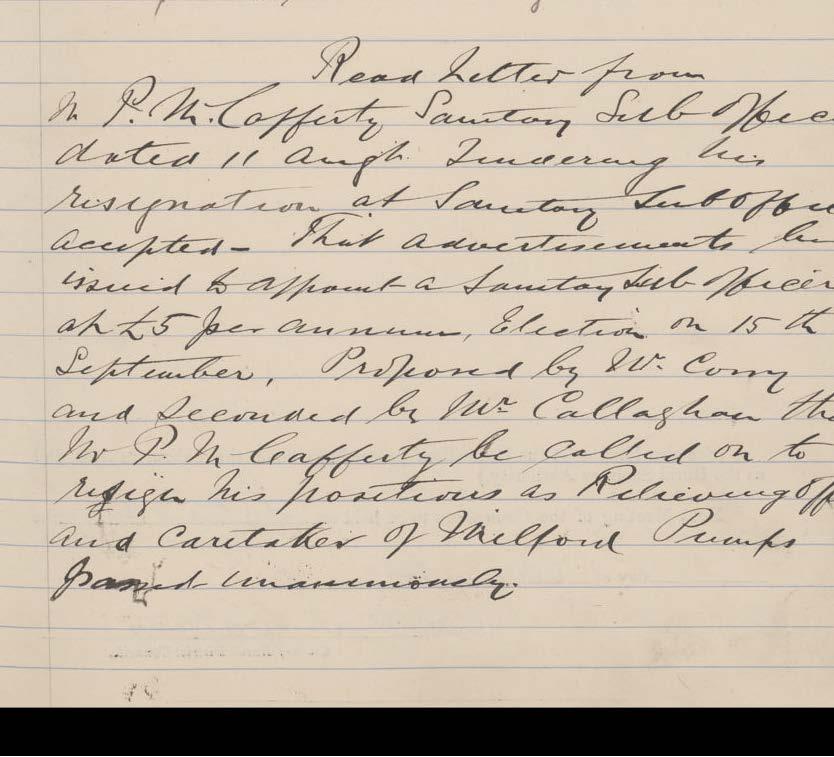 Read Letter from
Mr P. McCafferty Sanitary Sub Offic
dated 11 Augt. Tendering his
resignation as Sanitary Sub Offic
accepted - That advertisements be
issued to appoint a Sanitary Sub Officer
at £5 per annum, Election on 15th
September. Proposed by Mr. Corry
and seconded by Mr. Callaghan tha
Mr P. McCafferty be called on to
resign his positions as Relieving Off
and Caretaker of Milford Pumps
passed unanimously.